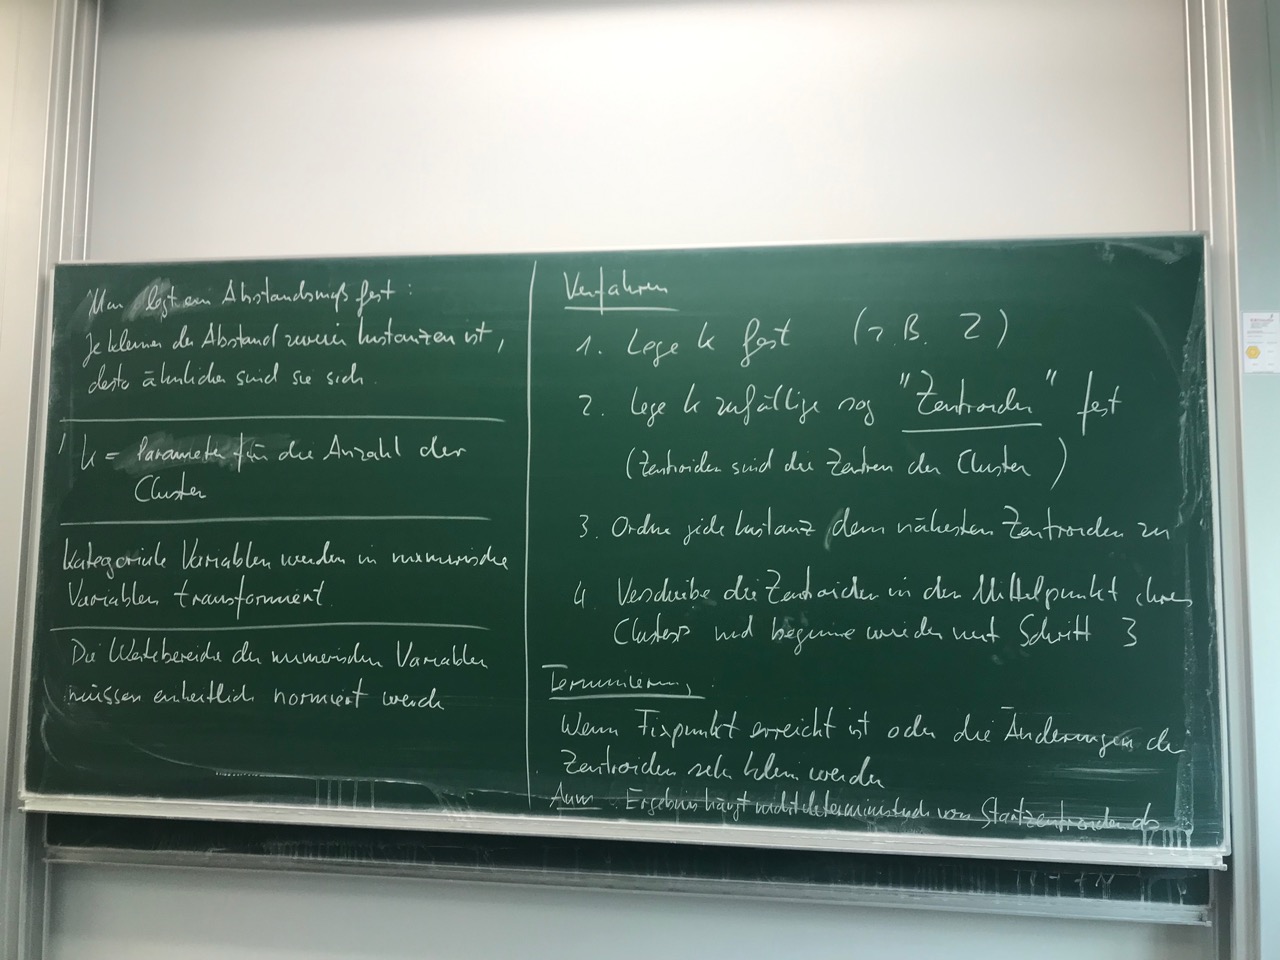 Man legt ein Abstandsmaß fest:
Je kleiner der Abstand zweier Instanzen ist,
desto ähnlicher sind sie sich.
k = Parameter für die Anzahl der
Cluster
Kategoriale Variablen werden in numerische
Variablen transformiert.
Die Wertebereiche der numerischen Variablen
müssen einheitlich normiert werden
Verfahren
1. Lege k fest (z.B. 2)
2. Lege k zufällige sog "Zentroiden" fest
(Zentroiden sind die Zentren der Cluster)
3. Ordne jede Instanz dem nähesten Zentroiden zu
4 Verschiebe die Zentroiden in den Mittelpunkt ihres
Clusters und beginne wieder mit Schritt 3
Terminierung:
Wenn Fixpunkt erreicht ist oder die Änderungen der
Zentroiden sehr klein werden
Anm: Ergebnis hängt nicht deterministisch von Startzentroiden ab